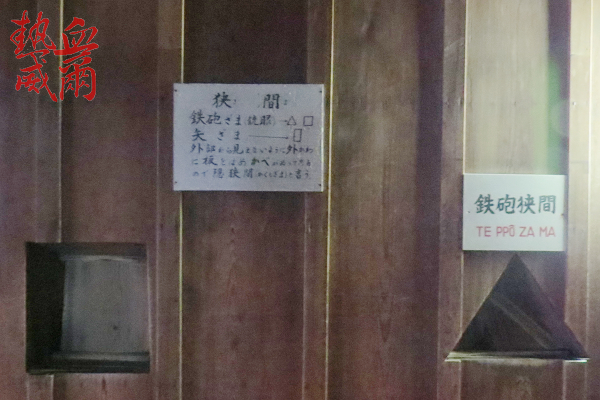 熱血
威爾
狭間
鉄砲ざま(銃眼)→△□
矢ざま―――▯
外部から見えないように外がわ
に板とよめかべがぬってある
ので隠狭間(かくしざま)と言う
鉄砲狭間
TE PPŌ ZA MA